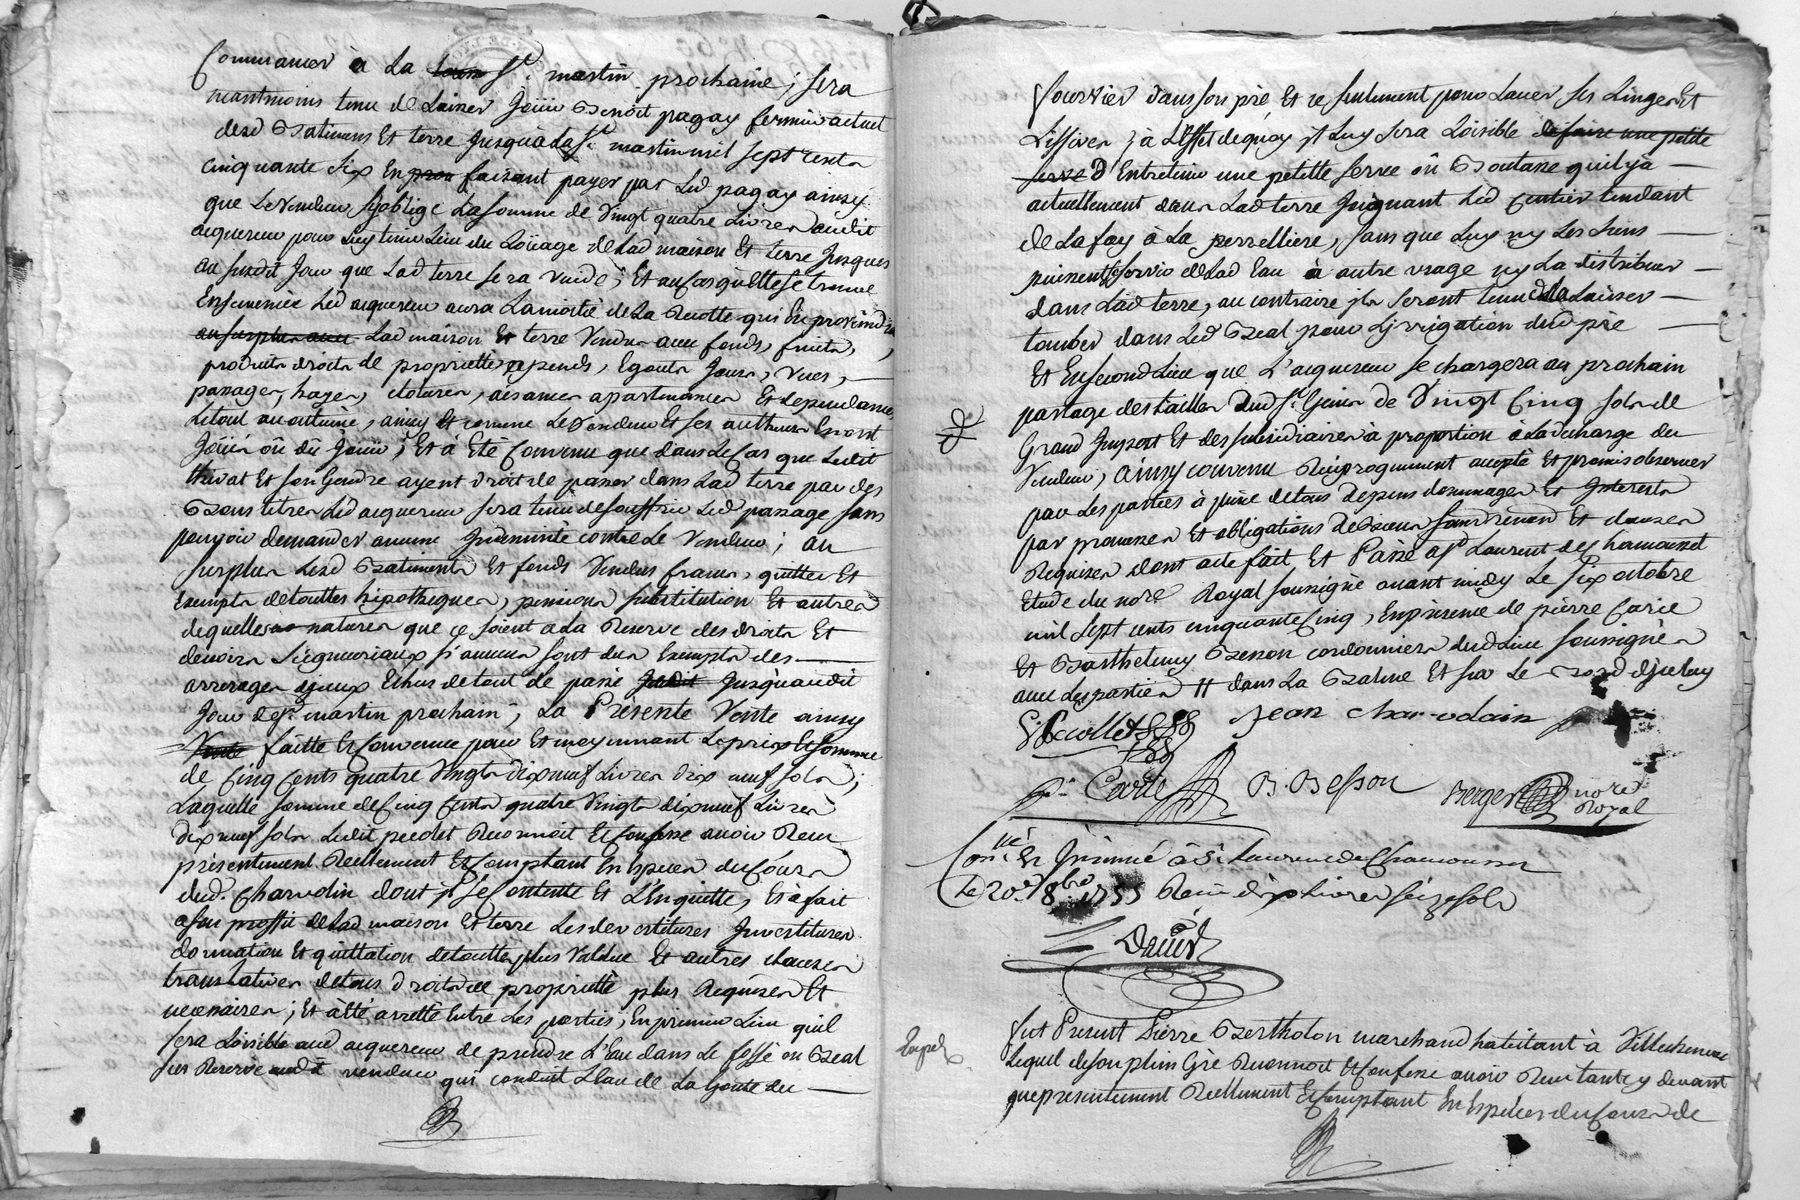 Commancer à La St. martin prochaine; sera
neantmoins tenu de Laisser Joüir Benoit pagay fermier actuel
desd Batimens Et terre Jusqu'à La St. martin mil sept cents
cinquante six En faisant payer par Led pagay ainsy
que Le Vendeur s'y oblige La somme de Vingt quatre Livres audit
acquereur pour Luy tenir Lieu du Loüage de Lad maison Et terre Jusques
au susdit Jour que Lad terre sera vuide; Et au cas qu'Elle se trouve
Ensemencée Led acquereur aura La moitié de La Recolte qui En proviendra
au surplus avec Lad maison Et terre Vendue avec fonds, fruits,
produits droits de proprietté, apends, Egouts Jours, vües,
passages, hayes, clotures, aisances apartenances Et dependances
Letout au entier, ainsy Et comme Le Vendeur Et ses autheurs En ont
Joüi ou dû Joüir; Et à Eté Convenu que dans Le Cas que Ledit
thivat Et son Gendre ayent droit de passer dans Lad terre par des
Bons titres Led acquereur sera tenu de souffrir Led passage sans
pouvoir demander aucune Indemnité contre Le Vendeur; au
surplus Lesd Batiments Et fonds Vendus francs, quittes Et
Exempts de touttes hipotheques, pensions substitution Et autres
de quelles natures que ce soient a La Reserve des droits Et
devoirs Seigneuriaux s'aucuns sont dus Exempts des
arrerages d'jceux Echus de tout Le passé Jusqu'audit
Jour de St martin prochain; La Presente Vente ainsy
Vente faitte Et Convenue pour Et moyennant Le prix Et somme
de Cinq Cents quatre Vingts dix neuf Livres dix neuf sols;
Laquelle somme de Cinq Cents quatre Vingts dix neuf Livres
dix neuf sols Ledit pecolet Reconnoit Et Confesse avoir Reçu
présentement Reellement Et Comptant En Especes du Cours
dud. Charvolin dont jl se Contente Et L'En quitte, Et a fait
a son proffit de Lad maison Et terre Les devestitures Investitures
donnation Et quittation de toutte plus Value Et autres clauses
translatives de tous droits de proprietté plus Requises Et
necessaires; Et à Eté arretté Entre Les parties, En premier Lieu quil
sera Loisible aud acquereur de prendre L'Eau dans Le fossé ou Beal
sur Reservé aud vendeur qui conduit L'Eau de La Goutte du
fourvier dans son pré Et ce seulement pour Laver ses Linges Et
Lessives; à L'Effet dequoy jl Luy sera Loisible de faire une petite
serve d Entretenir une petitte serve ou Boutasse quil y à
actuellement dans Lad terre Joignant Led sentier tendant
de Lafay à La perrelliere, sans que Luy ny Les siens
puissent se servir de Lad Eau à autre usage ny La distribuer
dans Lad terre, au contraire jls seront tenus de La Laisser
tomber dans Led Beal pour L'jrrigation dud pré
Et En second Lieu que L'acquereur se chargera au prochain
partage des tailles dud St. Genis de Vingt Cinq sols de
Grand Impost Et des subsidiaires à proportion à La decharge du
Vendeur, ainsy convenu Reciproquement accepté Et promis observer
par Les parties à peine de tous depens dommages Et Interests
par promesses Et obligations de biens soumissions Et clauses
Requises dont acte fait Et Passé a St Laurent de Chamousset
Etude du nore Royal soussigné avant midy Le six octobre
mil sept cents cinquante Cinq, En presence de pierre Carie
Et Barthelemy Besson cordonniers dud Lieu soussignés
avec Les parties
Jean charvolain
Carie B. Besson Berger nore
Royal
Con.lé Et Jnsinué à St Laurent de Chamousset
Le 20.e 8bre 1755 Reçu dix Livres seize sols
David
fut Present Pierre Bertholon marchand habitant à Villecheneve
Lequel de son plein Gré Reconnoit Et Confesse avoir Reçu tant cy devant
que presentement Reellement Et Comptant En Especes du Cours de